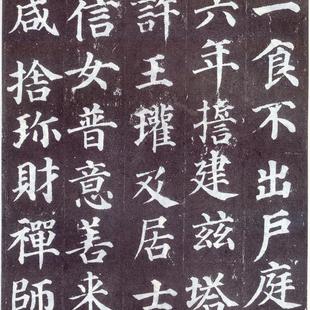 一食不出戶庭
六年誓建茲塔
許王瓘及居士
信女普意善来
咸捨珎財禪師